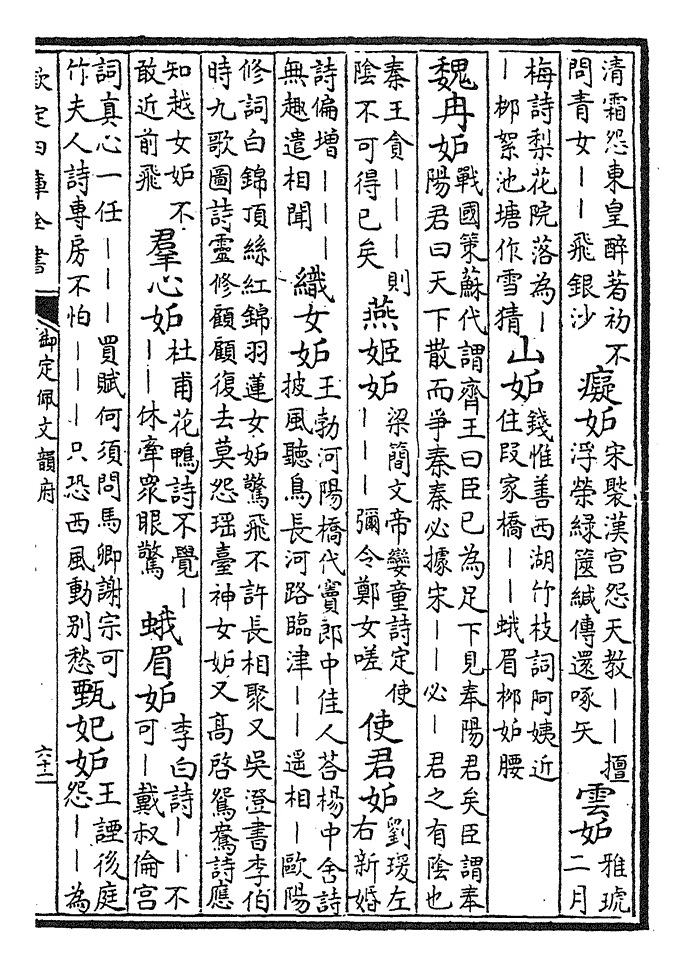 清霜怨東皇醉著初不
問青女丨丨飛銀沙
癡妬
宋褧漢宮怨天教丨丨擅
浮榮綠篋緘傳還啄矢
雲妬
雅琥
二月
梅詩梨花院落為丨
丨栁絮池塘作雪猜
山妬
錢惟善西湖竹枝詞阿姨近
住段家橋丨丨蛾眉栁妬腰
魏冉妬
戰國策蘇代謂齊王曰臣已為足下見奉陽君矣臣謂奉
陽君曰天下散而爭秦秦必據宋丨丨必丨君之有陰也
秦王貪丨丨丨則
陰不可得已矣
燕姬妬
梁簡文帝孌童詩定使
丨丨丨彌令鄭女嗟
使君妬
劉瑗左
右新婚
詩偏增丨丨丨
無趣遣相聞
織女妬
王勃河陽橋代竇郎中佳人荅楊中舍詩
披風聽鳥長河路臨津丨丨遥相丨歐陽
修詞白錦頂絲紅錦羽蓮女妬驚飛不許長相聚又吳澄書李伯
時九歌圖詩靈修顧顧復去莫怨瑶臺神女妬又高啓鴛鴦詩應
知越女妬不
敢近前飛
羣心妬
杜甫花鴨詩不覺丨
丨丨休牽眾眼驚
蛾眉妬
李白詩丨丨不
可丨戴叔倫宮
詞真心一任丨丨丨買賦何須問馬卿謝宗可
竹夫人詩專房不怕丨丨丨只恐西風動别愁
甄妃妬
王諲後庭
怨丨丨為
欽定四庫全書
御定佩文韻府
六十二